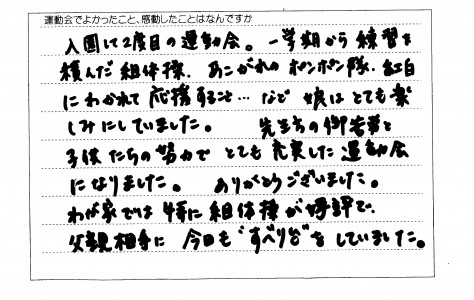 運動会でよかったこと、感動したことはなんですか
入園して2度目の運動会。一学期から練習を
積んだ組体操、あこがれのポンポン隊、紅白
にわかれて応援すること…など娘はとても楽
しみにしていました。 先生方の御苦労と
子供たちの努力でとても充実した運動会
になりました。ありがとうございました。
わが家では特に組体操が好評で、
父親相手に今日も"すべり台"をしていました。